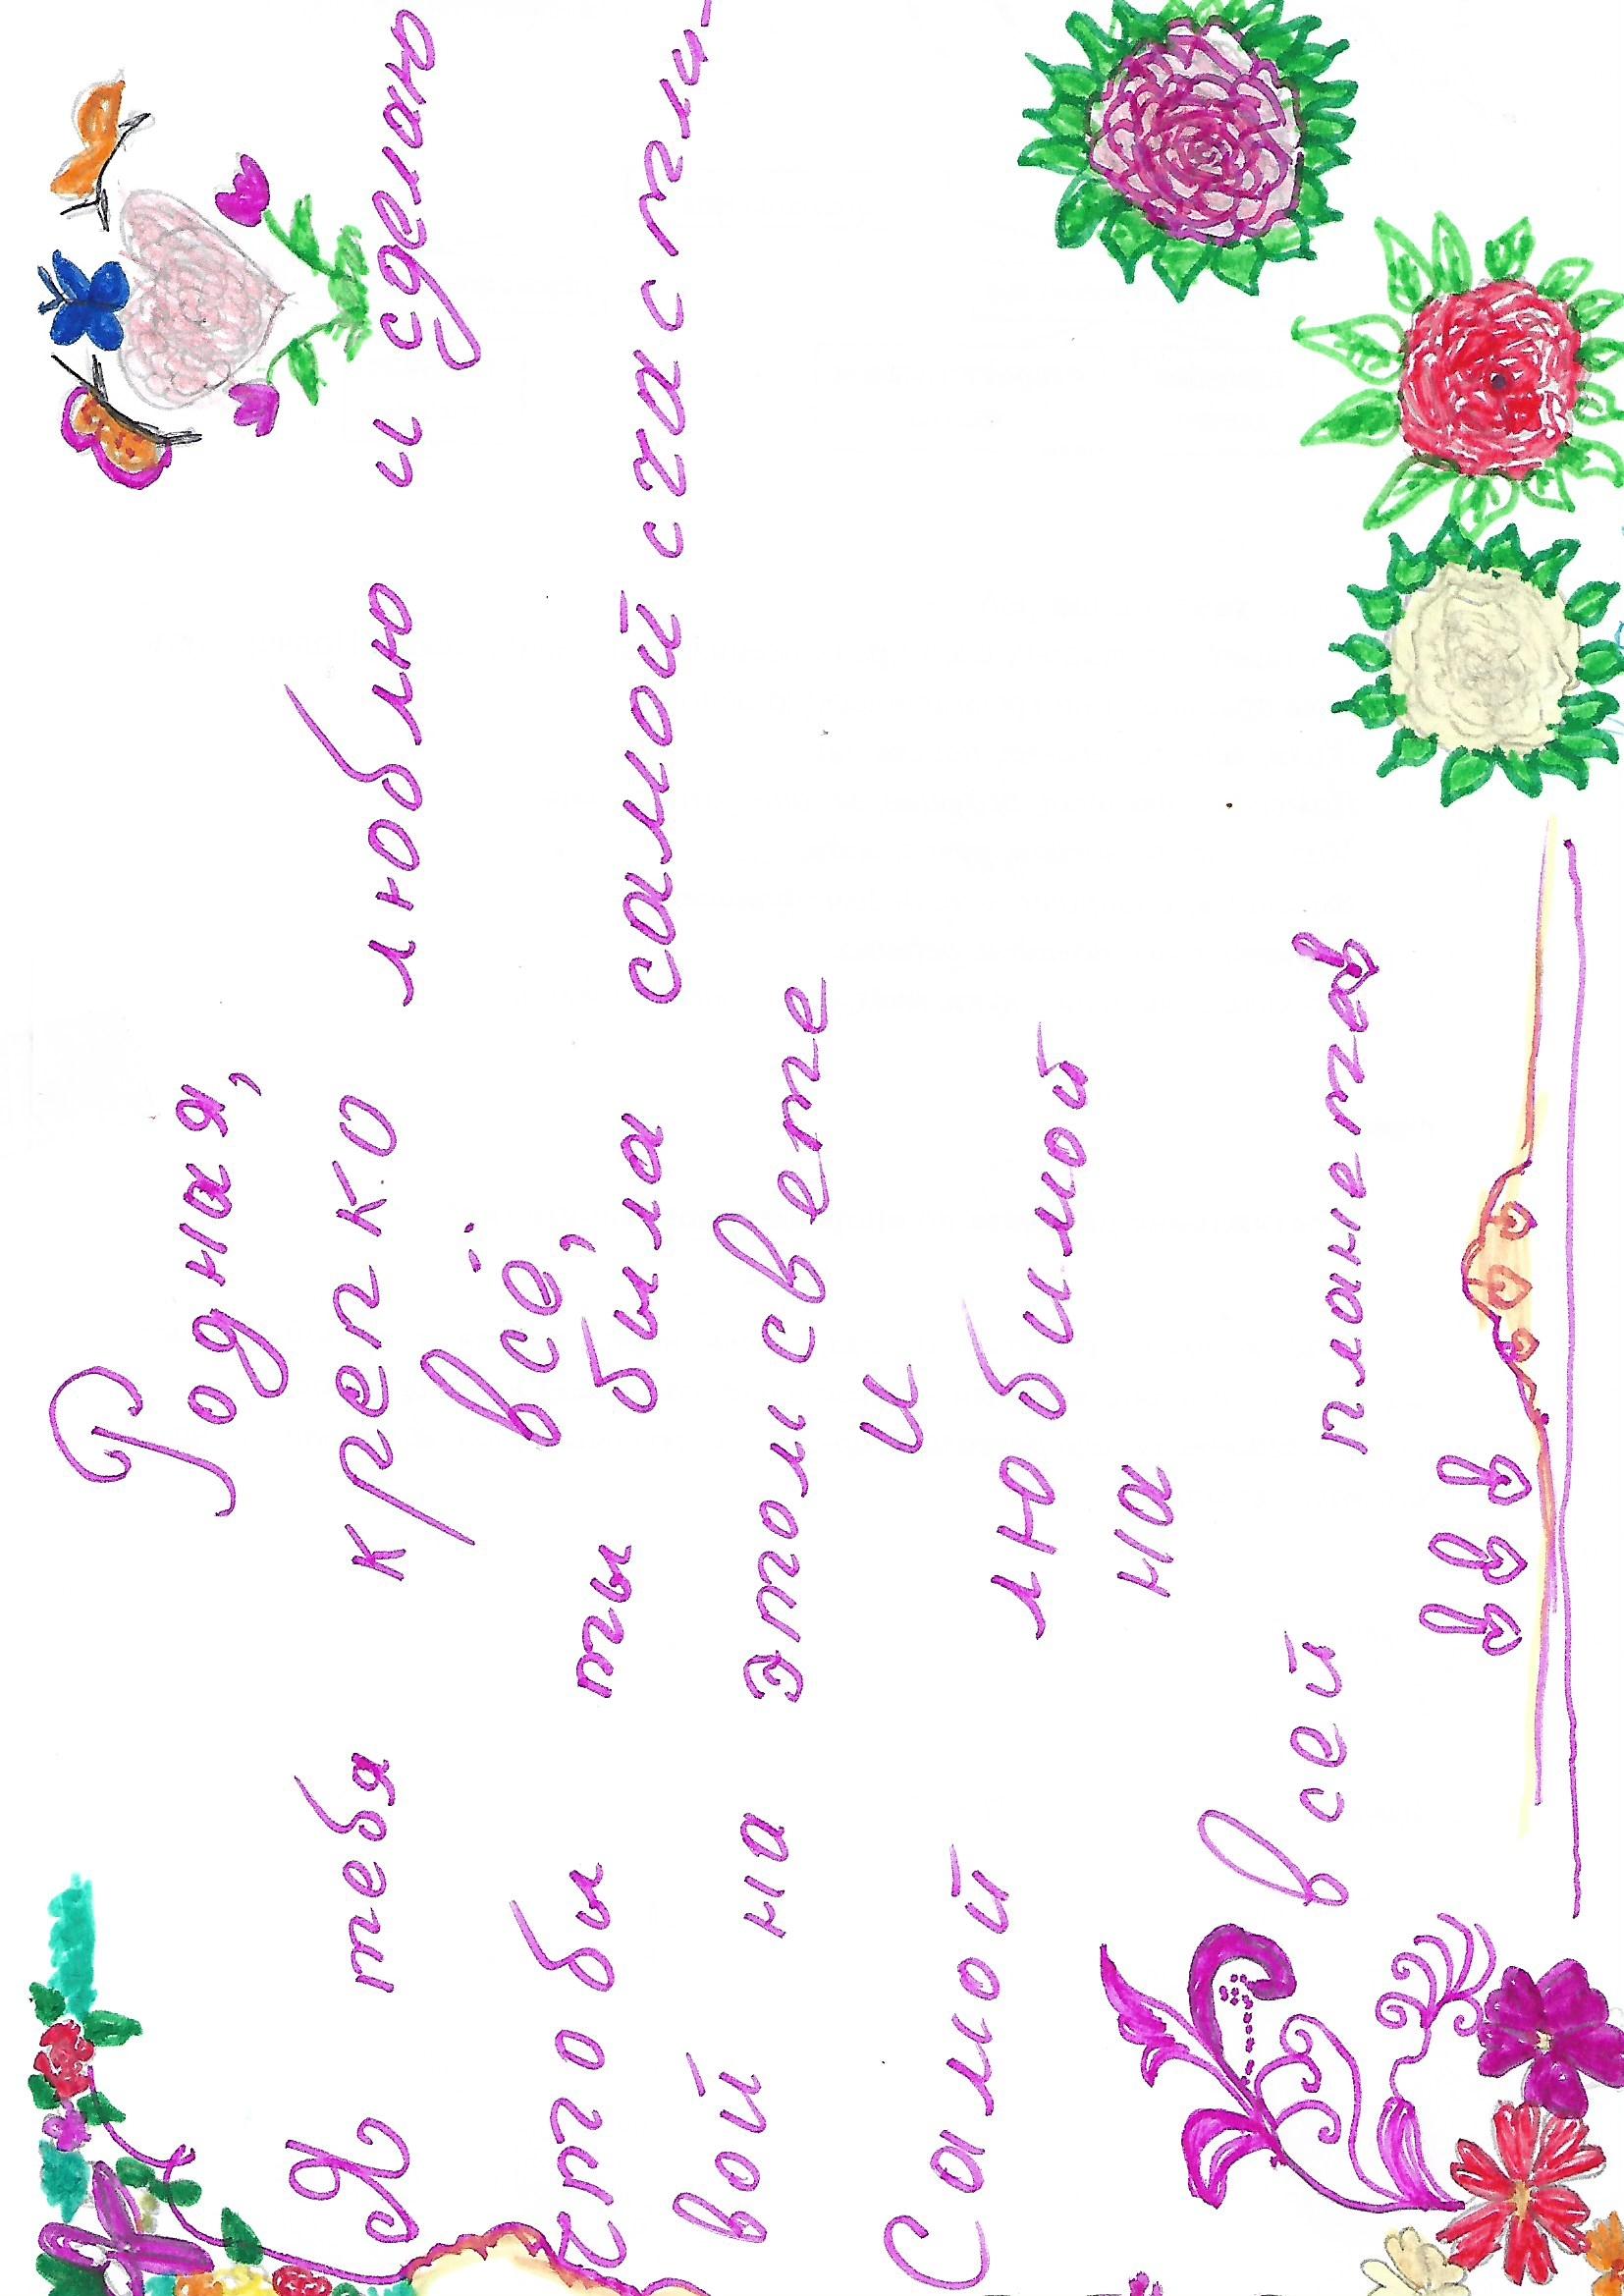 Родная,
Я тебя крепко люблю и сделаю
всё,
чтобы ты была самой счастли-
вой на этом свете
и
Самой любимой
на
всей планете!